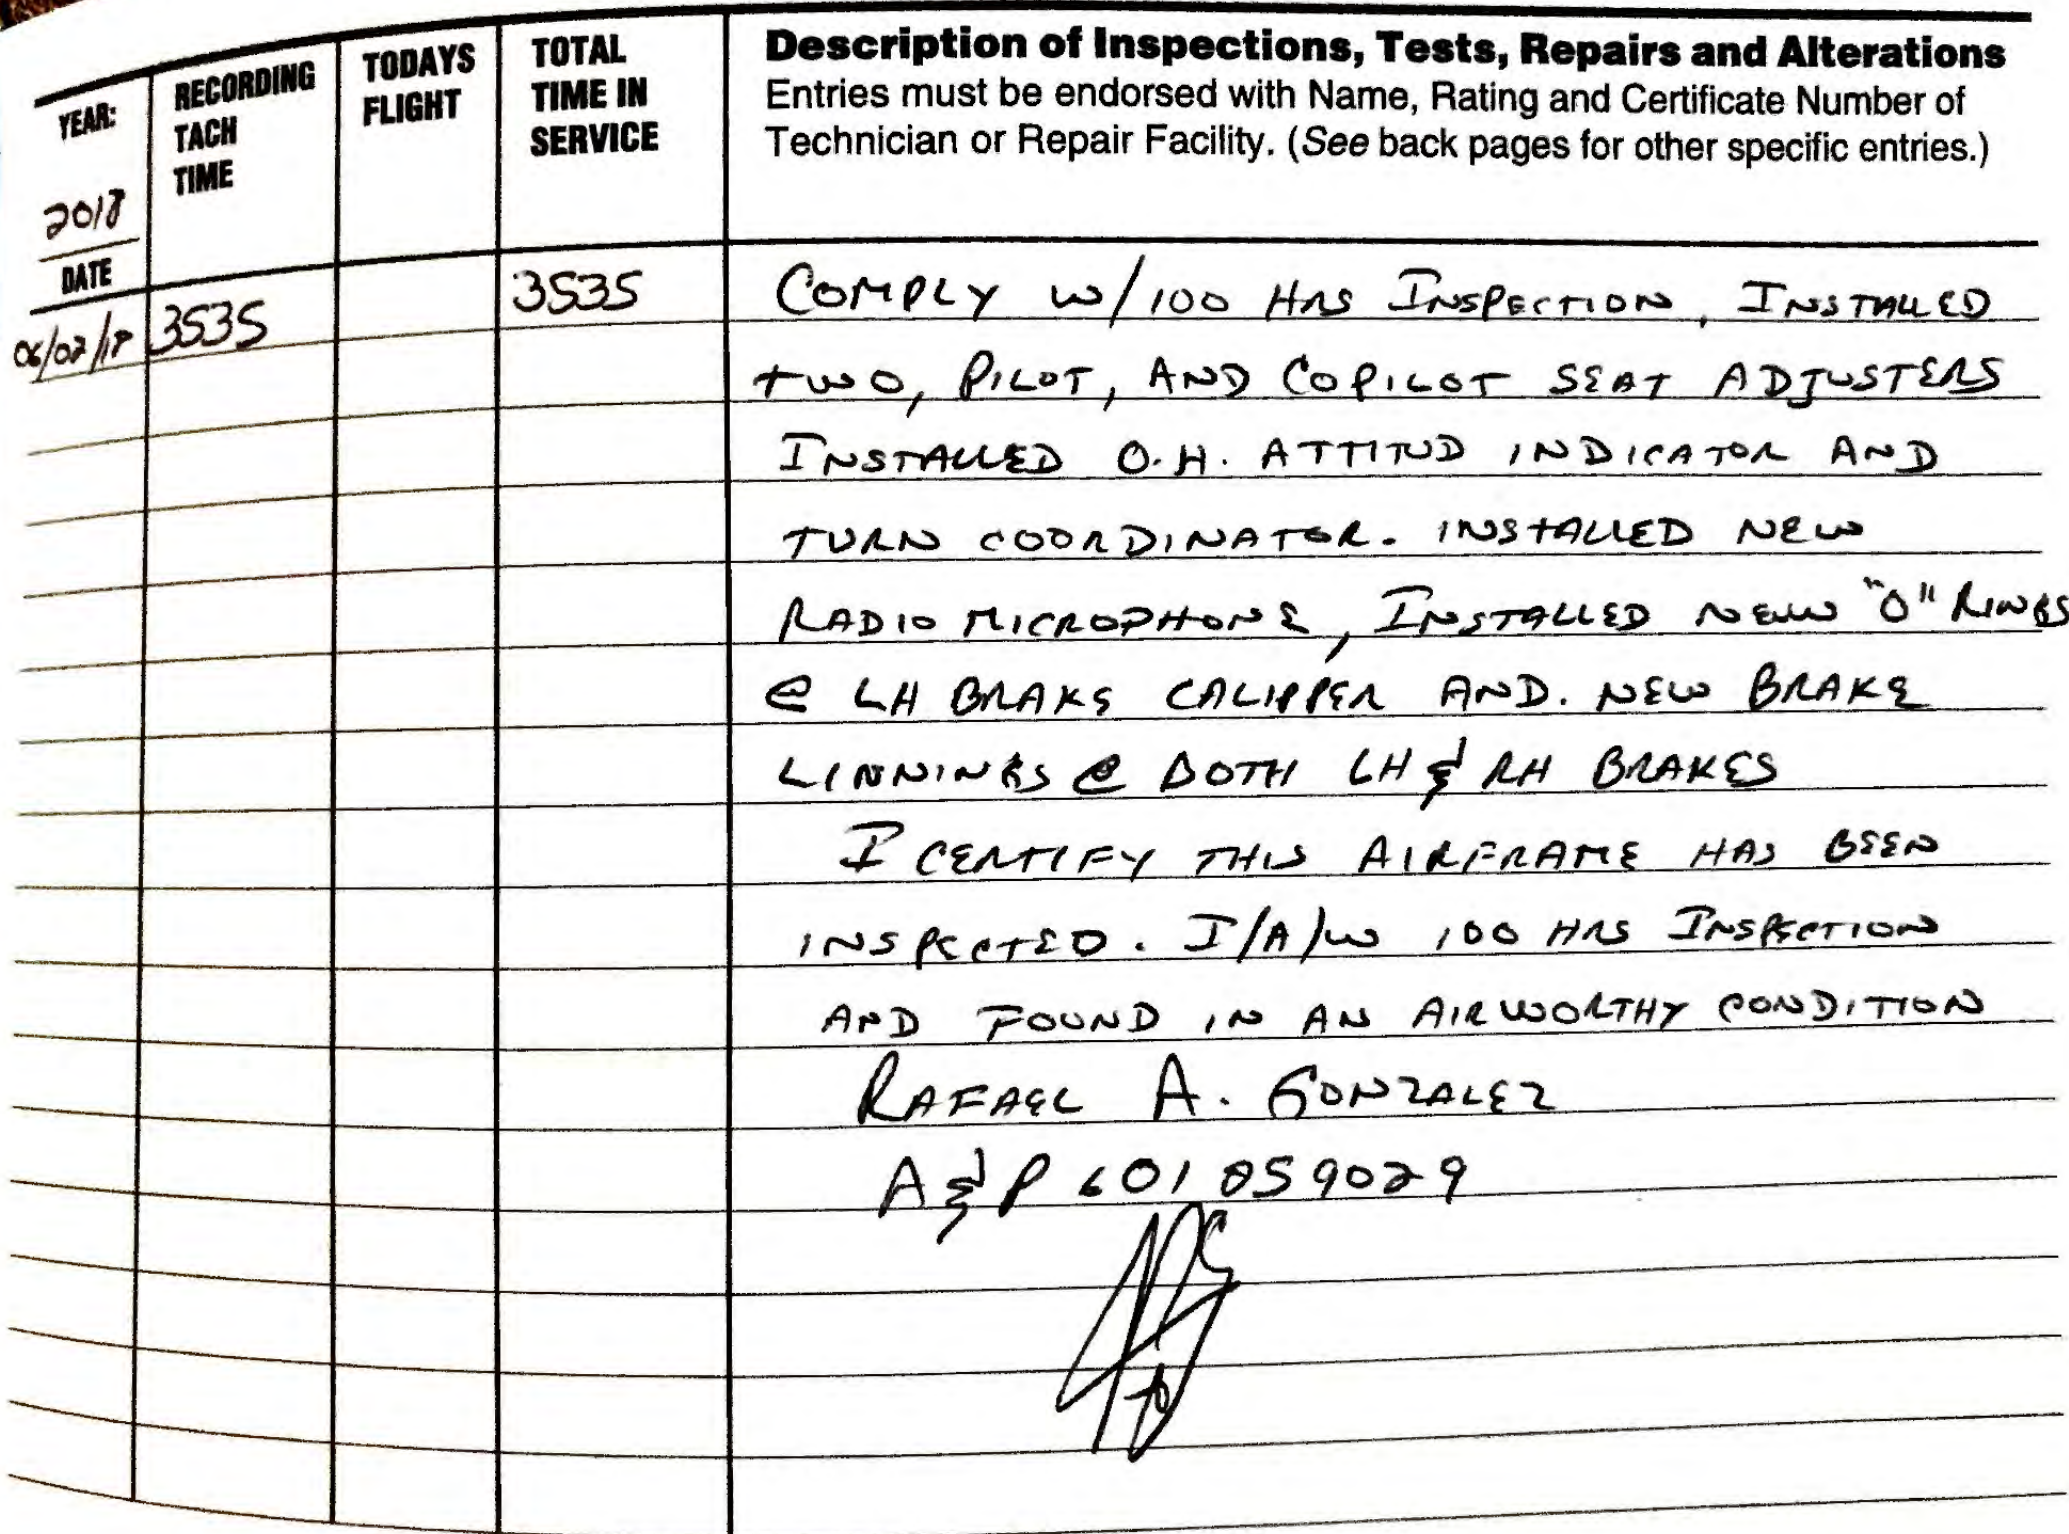 YEAR:
2018
DATE
RECORDING
TACH
TIME
TODAYS
FLIGHT
TOTAL
TIME IN
SERVICE
Description of Inspections, Tests, Repairs and Alterations
Entries must be endorsed with Name, Rating and Certificate Number of
Technician or Repair Facility. (See back pages for other specific entries.)
06/02/18 3535 3535 COMPLY W/100 HRS INSPECTION, INSTALLED
TWO, PILOT, AND COPILOT SEAT ADJUSTERS
INSTALLED O.H. ATTITUD INDICATOR AND
TURN COORDINATOR. INSTALLED NEW
RADIO MICROPHONE, INSTALLED NEW "O" RINGS
@ LH BRAKE CALIPPER AND. NEW BRAKE
LINNINGS @ BOTH LH & RH BRAKES
I CERTIFY THIS AIRFRAME HAS BEEN
INSPECTED. I/A/W 100 HRS INSPECTION
AND FOUND IN AN AIRWORTHY CONDITION
RAFAEL A. GONZALEZ
A&P 601059029